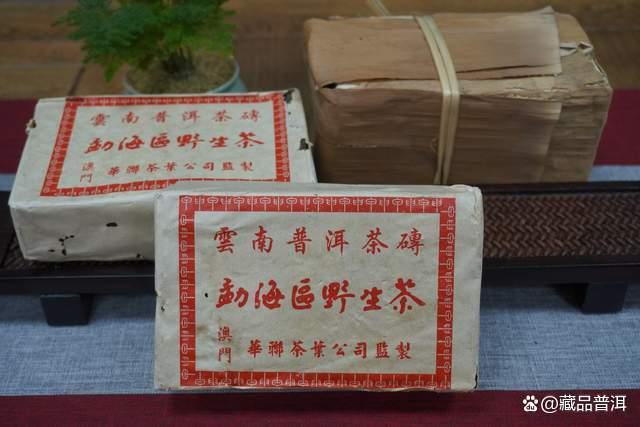 雲南普洱茶磚
勐海區野生茶
澳門 華聯茶葉公司監製
雲南普洱茶磚
勐海區野生茶
澳門 華聯茶葉公司監製
@藏品普洱